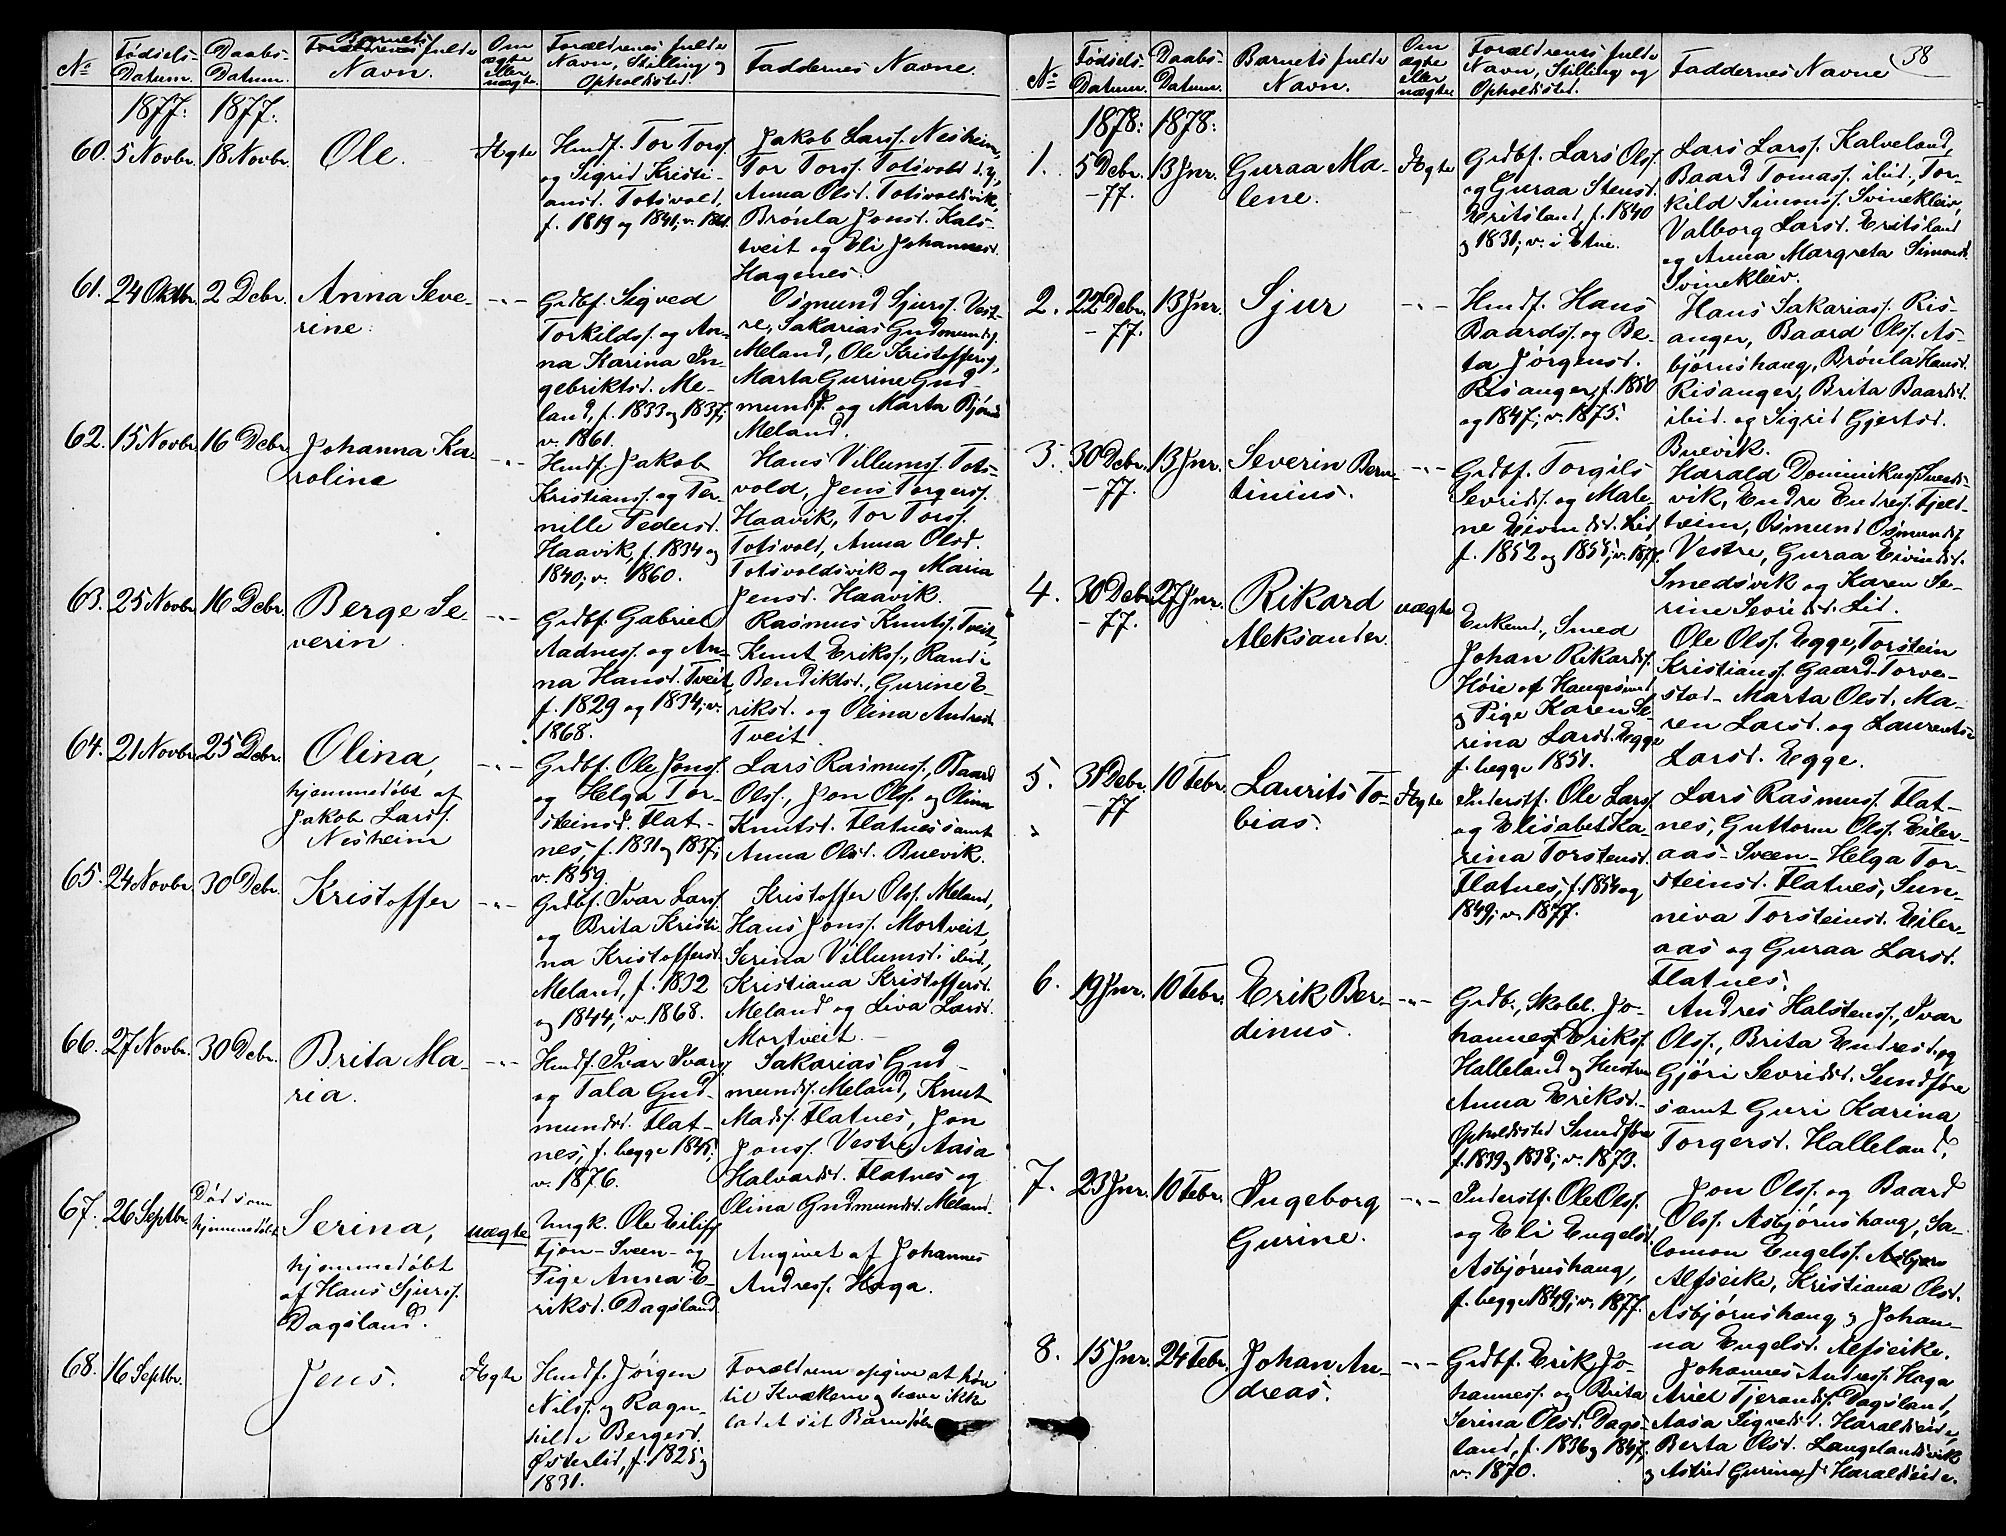 No
Fødsels-
Datum.
Daabs-
Datum.
Barnets fulde
Navn.
Om
ægte
eller
uægte.
Forældrenes fulde
Navn, Stilling og
Opholdssted.
Faddernes Navne.
1877.
1877.
60.
5 Novbr.
18 Novbr.
Ole.
Ægte
Hmdf. Tor Torss.
og Sigrid Kristi-
ansd. Totsvold,
f. 1819 og 1841; v. 1861
Jakob Larss. Nesheim,
Tor Torss. Totsvold d.y.,
Anna Olsd. Totsvoldsvik,
Brønla Jonsd. Kals-
tveit og Eli Johannesd.
Hagenes.
61.
24 Oktbr.
2 Debr.
Anna Seve-
rine.
-"-
Grdbf. Sigved
Torkildss. og An-
na Karina In-
gebriktsd. Me-
land, f. 1833 og 1837;
v. 1861.
Osmund Sjurss. Vest-
re, Sakarias Gudmundss.
Meland, Ole Kristofferss.,
Marta Gurine Gud-
mundsd. og Marta Bjørnsd.
Meland.
62.
15 Novbr.
16 Debr.
Johanna Ka-
rolina
-"-
Hmdf. Jakob
Kristianss. og Per-
nille Pedersd.
Haavik, f. 1834 og
1840; v. 1860.
Hans Villumss. Tots-
vold, Jens Torgerss.
Haavik, Tor Torss.
Totsvold, Anna Olsd.
Totsvoldsvik og Maria
Jensd. Haavik.
63.
25 Novbr.
16 Debr.
Berge Se-
verin
-"-
Grdbf. Gabriel
Aadness. og An-
na Hansd. Tveit
f. 1829 og 1834; v.
1868.
Rasmus Knutss. Tveit,
Knut Erikss., Randi
Bendiktsd., Gurine E-
riksd. og Olina Andersd.
Tveit.
64.
21 Novbr.
25 Debr.
Olina,
hjemmedøbt af
Jakob Larss.
Nesheim
-"-
Grdbf. Ole Jonss.
og Helga Tor-
steinsd. Flat-
nes, f. 1831 og 1837;
v. 1859.
Lars Rasmuss., Baard
Olss., Jon Olss. og Olina
Knutsd. Flatnes samt
Anna Olsd. Buevik.
65.
24 Novbr.
30 Debr.
Kristoffer
-"-
Grdbf. Ivar Larss.
og Brita Kristi-
na Kristoffersd.
Meland, f. 1832
og 1844; v. 1868.
Kristoffer Olss. Meland,
Hans Jonss. Mortveit,
Serina Villumsd. ibid.,
Kristiana Kristoffersd.
Meland og Liva Larsd.
Mortveit.
66.
27 Novbr.
30 Debr.
Brita Ma-
ria.
-"-
Hmdf. Ivar Ivarss.
og Tala Gud-
mundsd. Flat-
nes, f. begge 1845,
v. 1876.
Sakarias Gud-
mundss. Meland, Knut
Madss. Flatnes, Jon
Jonss. Vestre, Aasa
Halvardsd. Flatnes og
Olina Gudmundsd. Meland.
67.
26 Septbr.
Død som
hjemmedøbt
Serina,
hjemmedøbt
af Hans Sjurss.
Dagsland.
uægte
Ungk. Ole Eilifss.
Fjon-Sveen- og
Pige Anna E-
riksd. Dagsland.
Angivet af Johannes
Andress. Haga.
68.
16 Septbr.
Jens.
Ægte
Hmdf. Jørgen
Nilss. og Ragn-
hilde Bergesd.
Østerlid, f. 1825 og
1831.
Forældrene opgive at høre
til Kvækerne og have ikke
ladet sit Barn døbe
38
No
Fødsels-
Datum.
Daabs-
Datum.
Barnets fulde
Navn.
Om
ægte
eller
uægte
Forældrenes fulde
Navn, Stilling og
Opholdssted.
Faddernes Navne
1878:
1878:
1.
5 Debr.
-77.
13 Jnr.
Guraa Ma-
lene.
Ægte
Grdbf. Lars Olss.
og Guraa Stensd.
Eritsland, f. 1840
og 1831; v. i Etne.
Lars Larss. Kalveland,
Baard Tomass. ibid., Tor-
kild Simonss. Svinekleiv,
Valborg Larsd. Eritsland
og Anna Margreta Simonsd.
Svinekleiv.
2.
22 Debr.
-77.
13 Jnr.
Sjur
-"-
Hmdf. Hans
Baardss. og Be-
ta Jørgensd.
Risanger, f. 1850
og 1847; v. 1875.
Hans Sakariass. Ris-
anger, Baard Olss. As-
bjørnshaug, Brønla Hansd.
Risanger, Brita Baardsd.
ibid. og Sigrid Gjertsd.
Buevik.
3.
30 Debr.
-77.
13 Jnr.
Severin Bern-
tinius.
-"-
Grdbf. Torgils
Sevridss. og Male-
ne Eivindsd. Lid,
f. 1852 og 1855; v. 1877.
Harald Dominikuss. Smeds-
vik, Endre Endress. Fjeld-
heim, Osmund Osmundss.
Vestre, Guraa Eivindsd.
Smedsvik og Karen Se-
rine Sevridsd. Lid.
4.
30 Debr.
-77.
27 Jnr.
Rikard
Aleksander.
uægte
Enkemd., Smed
Johan Rikardss.
Høie af Haugesund
og Pige Karen Se-
rina Larsd. Egge
f. begge 1851.
Ole Olss. Egge, Torstein
Kristianss. Gaard-Torve-
stad- Marta Olsd. Ma-
ren Larsd. og Laurentse
Larsd. Egge.
5.
31 Debr.
-77
10 Febr.
Laurits To-
bias.
Ægte
Inderstf. Ole Larss.
og Elisabet Ka-
rina Torstensd.
Flatnes, f. 1854 og
1849; v. 1877.
Lars Rasmuss. Flat-
nes, Guttorm Olss. Eiler-
aas-Sveen- Helga Tor-
steinsd. Flatnes, Sun-
niva Torsteinsd. Eiler-
aas og Guraa Larsd.
Flatnes.
6.
19 Jnr.
10 Febr.
Erik Ber-
dinus.
-"-
Grdb., Skolel. Jo-
hannes Erikss.
Halleland og Hustru
Anna Eriksd.-
Opholdssted Sundføre
f. 1839 og 1838; v. 1873.
Andres Halstenss., Ivar
Olss., Brita Endresd. og
Gjøri Sevridsd. Sundføre
samt Guri Karina
Torgersd. Halleland.
7.
23 Jnr.
10 Febr.
Ingeborg
Gurine.
-"-
Inderstf. Ole Olss.
og Eli Engelsd.
Asbjørnshaug,
f. begge 1849; v. 1877.
Jon Olss. og Baard
Olss. Asbjørnshaug, Sa-
lomon Engelss.
Alfseike, Kristiana Olsd.
Asbjørnshaug og Johan-
na Engelsd. Alfseike.
8.
15 Jnr.
24 Febr.
Johan An-
dreas.
-"-
Grdbf. Erik Jo-
hanness. og Brita
Serina Olsd. Dags-
land, f. 1836 og 1847;
v. 1870.
Johannes Andress. Haga
Ariel Tjerandss. Dagsland,
Aasa Sigvedsd. Haraldseide,
Berta Olsd. Langelandsvik
og Astrid Gurina Haraldseide.